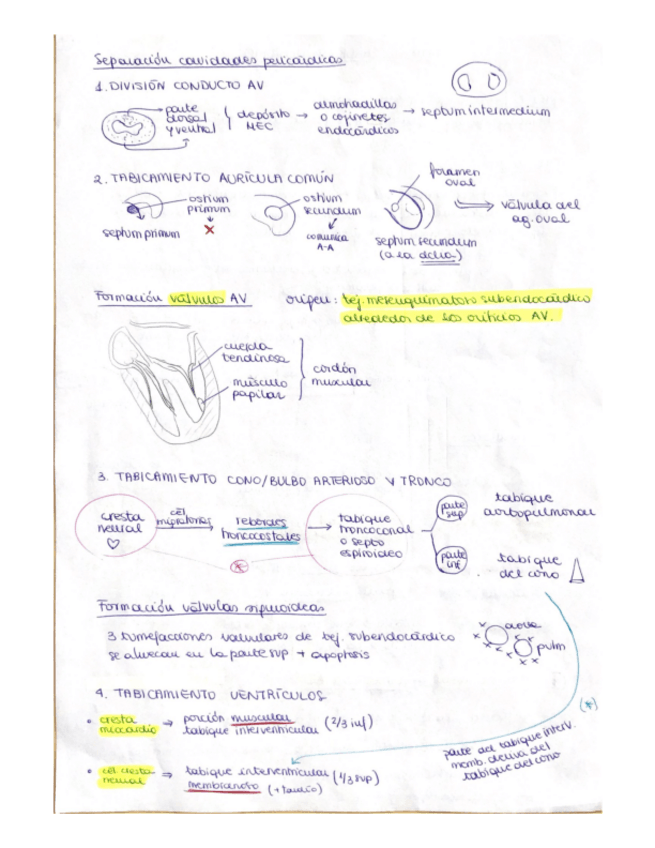 Separación cavidades pericárdicas
1. DIVISIÓN CONDUCTO AV
parte dorsal y ventral
depósito MEC → almohadillas o cojinetes endocárdicos → septum intermedium
2. TABICAMIENTO AURÍCULA COMÚN
ostium primum
X
septum primum
ostium secundum
comunica A-A
foramen oval
septum secundum
(a la dcha)
válvula del ag. oval
Formación válvulas AV
origen: tej. mesenquimatoso subendocárdico
alrededor de los orificios AV.
cuerda tendinosa
músculo papilar
cordón muscular
3. TABICAMIENTO CONO/BULBO ARTERIOSO Y TRONCO
cresta neural
cél migratorias
rebordes
→ tabique troncoconal o septo espiroideo
parte sup
tabique aortopulmonar
parte inf
tabique del cono
Formación válvulas sigmoideas
3 tumefacciones valvulares de tej. subendocárdico
se ahuecan en la parte sup + apoptosis
aorta
pulm
4. TABICAMIENTO VENTRÍCULOS
• cresta miocardio → porción muscular tabique interventricular (2/3 inf)
(*)
parte del tabique interv.
memb. deriva del
tabique del cono
• cél. cresta neural ⇒ tabique interventricular (1/3 sup)
membranoso